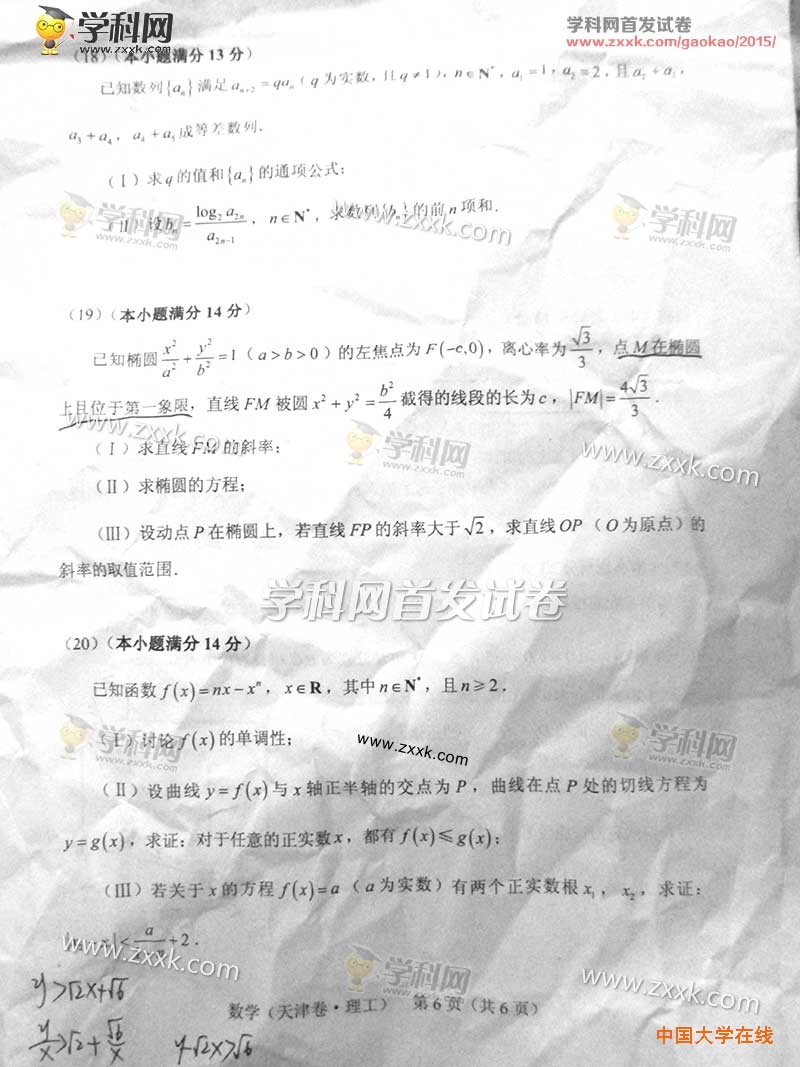 学科网
www.zxxk.com
学科网首发试卷
www.zxxk.com/gaokao/2015/
(18)(本小题满分 13 分)
已知数列{aₙ}满足 aₙ₊₂ = qaₙ ( q 为实数, 且 q ≠ 1 ), n∈N*, a₁ = 1, a₂ = 2, 且 a₂ + a₃,
a₃ + a₄, a₄ + a₅ 成等差数列.
(Ⅰ) 求 q 的值和{aₙ}的通项公式;
学科网
www.zxxk.com
学科网
www.zxxk.com
www.zxxk.com
(Ⅱ) 设 bₙ = log₂ a₂ₙ / a₂ₙ₋₁, n∈N*, 求数列{bₙ}的前 n 项和.
(19)(本小题满分 14 分)
已知椭圆 x²/a² + y²/b² = 1 ( a > b > 0 ) 的左焦点为 F(−c,0), 离心率为 √3/3, 点 M 在椭圆
上且位于第一象限, 直线 FM 被圆 x² + y² = b²/4 截得的线段的长为 c, |FM| = 4√3/3.
www.zxxk.com
(Ⅰ) 求直线 FM 的斜率;
学科网
www.zxxk.com
www.zxxk.com
(Ⅱ) 求椭圆的方程;
(Ⅲ) 设动点 P 在椭圆上, 若直线 FP 的斜率大于 √2, 求直线 OP ( O 为原点) 的
斜率的取值范围.
学科网首发试卷
(20)(本小题满分 14 分)
已知函数 f(x) = nx − xⁿ, x∈R, 其中 n∈N*, 且 n ≥ 2.
学科网
www.zxxk.com
(Ⅰ) 讨论 f(x) 的单调性;
www.zxxk.com
学科网
www.zxxk.com
(Ⅱ) 设曲线 y = f(x) 与 x 轴正半轴的交点为 P, 曲线在点 P 处的切线方程为
y = g(x), 求证: 对于任意的正实数 x, 都有 f(x) ≤ g(x);
(Ⅲ) 若关于 x 的方程 f(x) = a ( a 为实数) 有两个正实数根 x₁, x₂, 求证:
| < a/ + 2.
www.zxxk.com
学科网
www.zxxk.com
www.zxxk.com
y>√2x+√6
数学 (天津卷·理工) 第 6 页 (共 6 页)
y/x>√2+√6/x
y-√2x>√6
中国大学在线